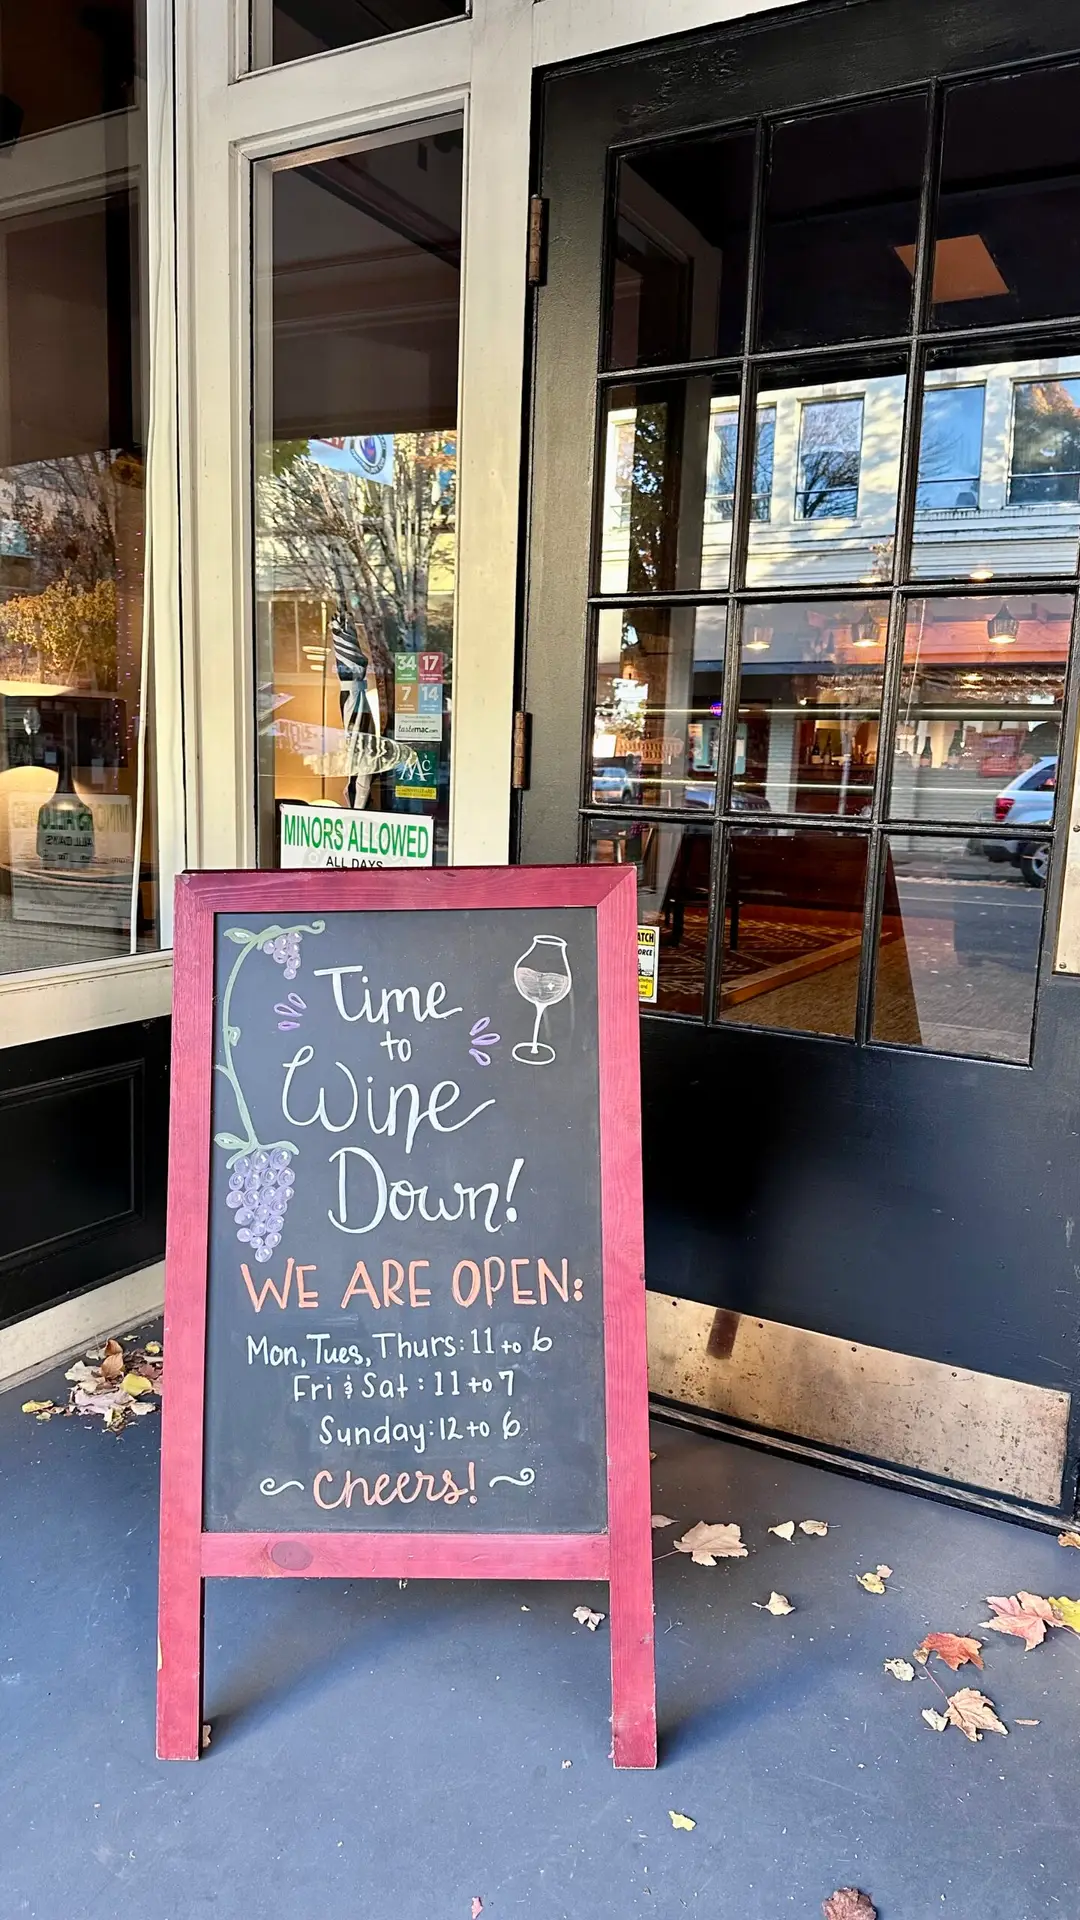 34 17
7 14
tastemac.com
Mc
MINORS ALLOWED
ALL DAYS
Time
to
Wine
Down!
WE ARE OPEN:
Mon, Tues, Thurs: 11 to 6
Fri & Sat: 11 to 7
Sunday: 12 to 6
~ Cheers! ~